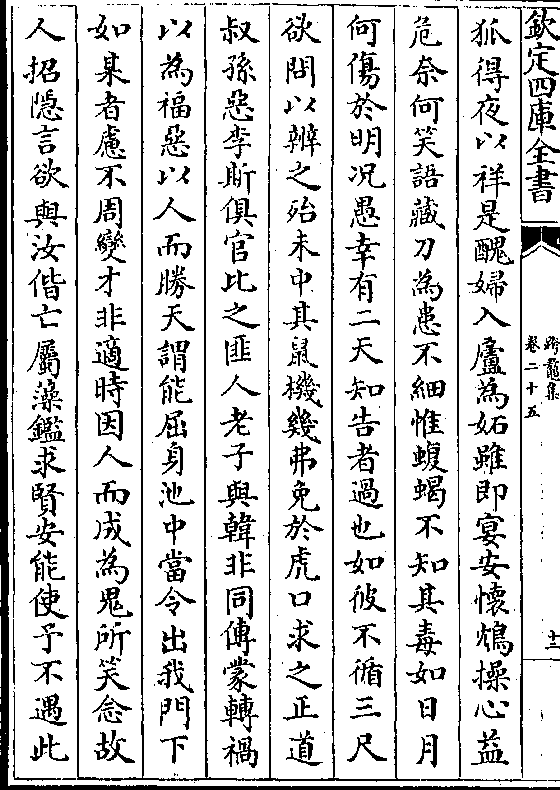 欽定四庫全書
跨鼇集
卷二十五
十二
狐得夜以祥是醜婦入廬為妬雖即宴安懷鴆操心益
危奈何笑語藏刀為患不細惟蝮蝎不知其毒如日月
何傷於明况愚幸有二天知告者過也如彼不循三尺
欲問以辨之殆未中其鼠機幾弗免於虎口求之正道
叔孫惡李斯俱官比之匪人老子與韓非同傅蒙轉禍
以為福惡以人而勝天謂能屈身池中當令出我門下
如某者慮不周變才非適時因人而成為鬼所笑念故
人招隱言欲與汝偕亡屬藻鑑求賢安能使予不遇此